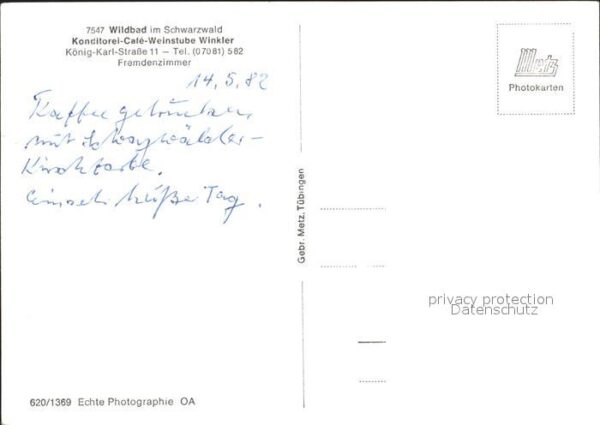 7547 Wildbad im Schwarzwald
Konditorei-Café-Weinstube Winkler
König-Karl-Straße 11 – Tel. (07081) 582
Fremdenzimmer
14.5.82
Kaffee getrunken,
mit Schwarzwälder-
Kirschtorte.
heißer Tag.
Metz
Photokarten
Gebr. Metz, Tübingen
privacy protection
Datenschutz
620/1369 Echte Photographie OA